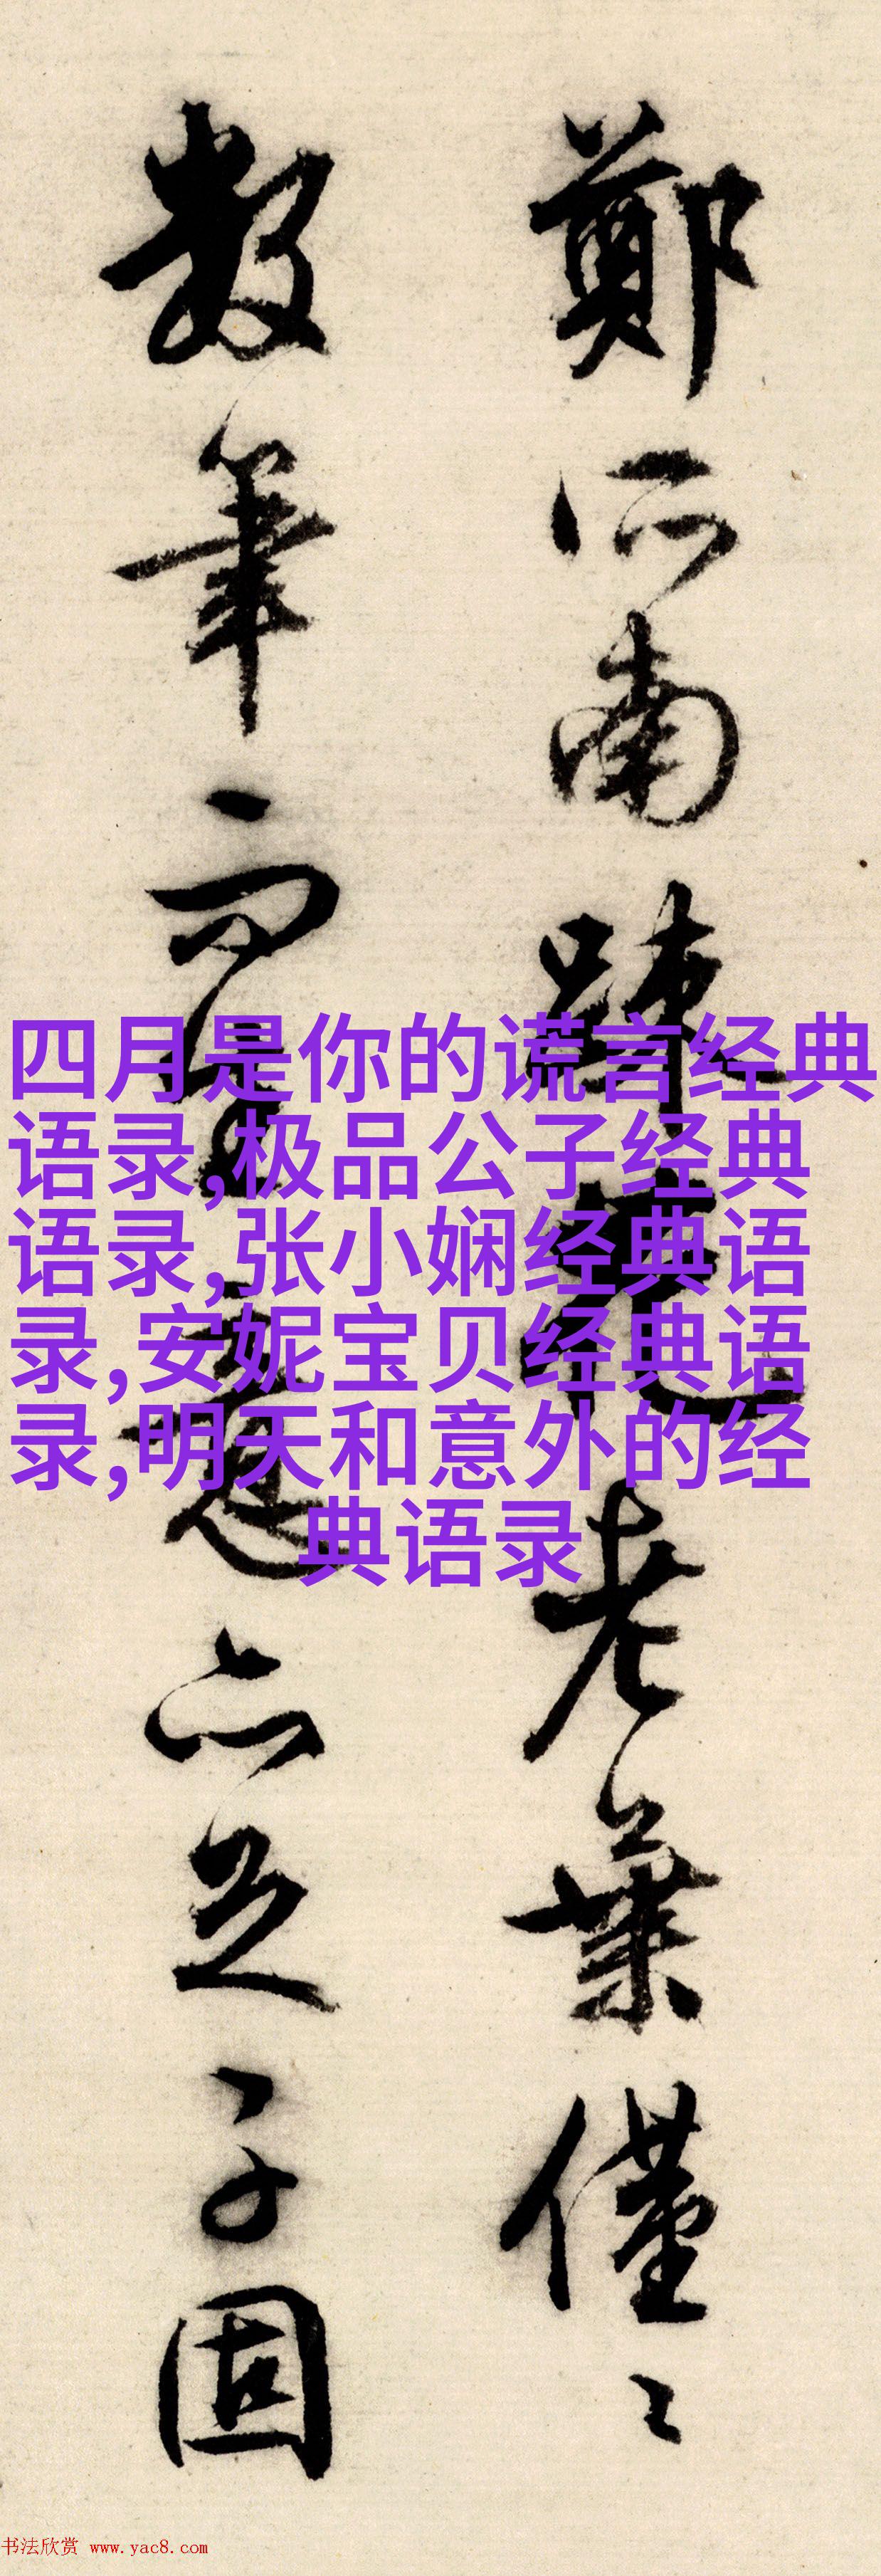 鄭所南疎花老葉僅〻
數筆而
亦足子固
四月是你的谎言经典
语录,极品公子经典
语录,张小娴经典语
录,安妮宝贝经典语
录,明天和意外的经
典语录
书法欣赏 www.yac8.com